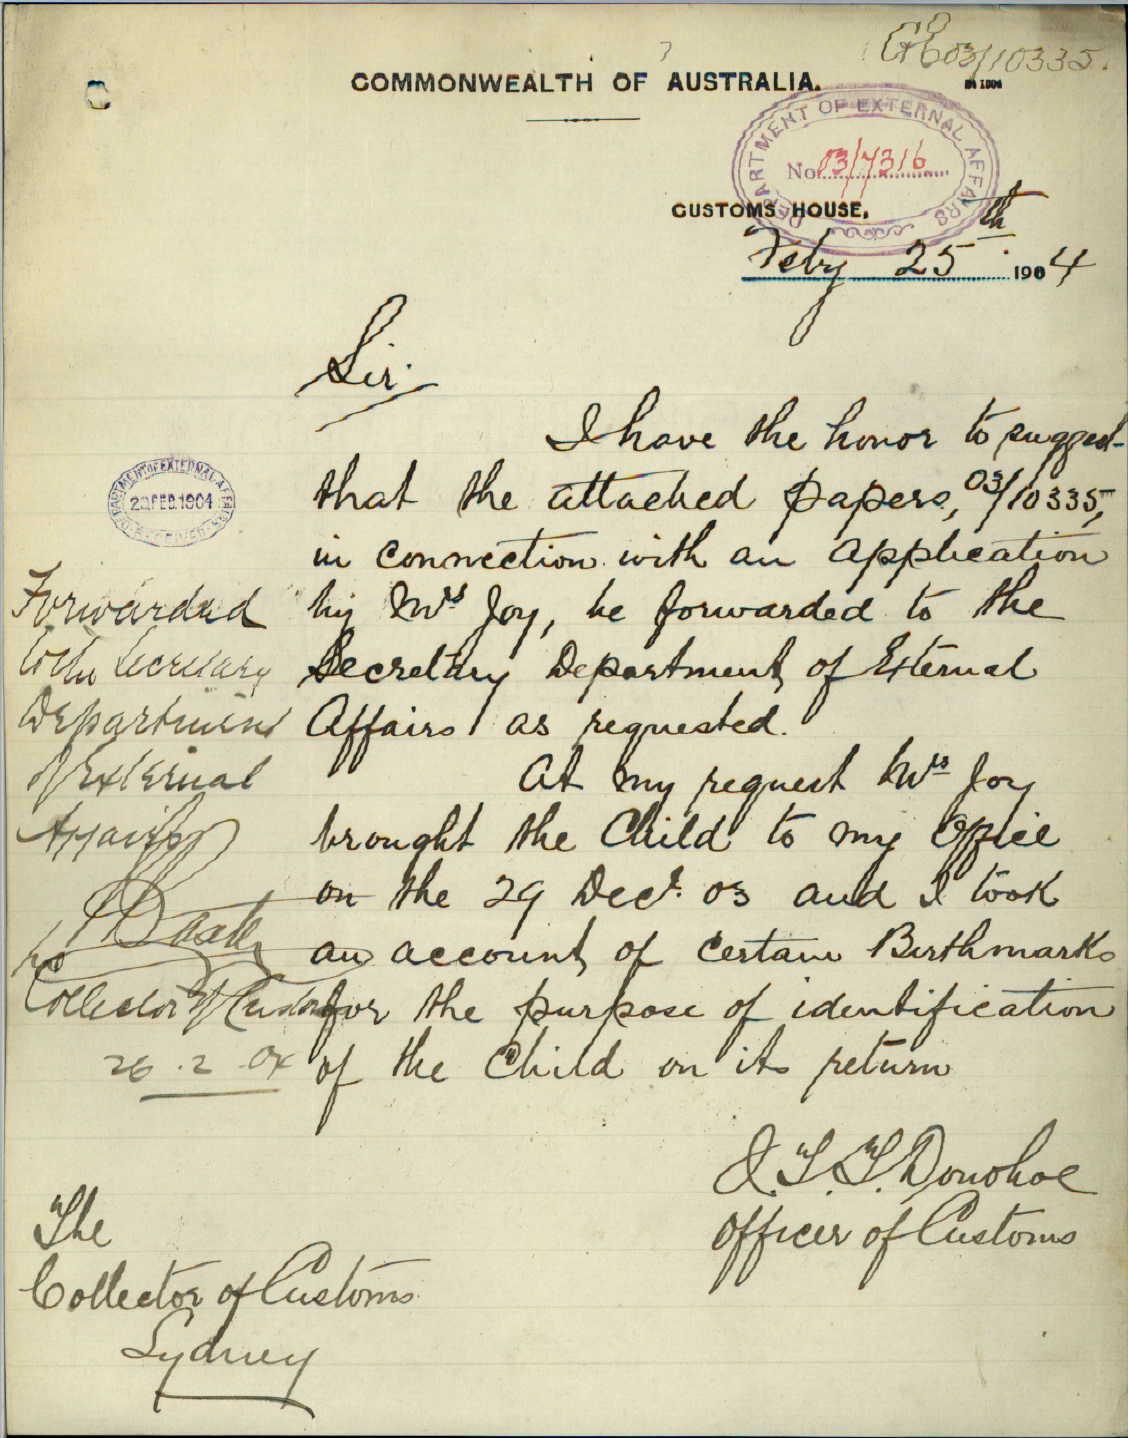 C 03/10335.
COMMONWEALTH OF AUSTRALIA.
DEPARTMENT OF EXTERNAL AFFAIRS
No. 03/7316
CUSTOMS HOUSE,
Feby 25th 1904
Sir.
I have the honor to suggest
that the attached papers, 03/10335,
in connection with an application
by Mrs Joy, be forwarded to the
Secretary Department of External
Affairs as requested.
At my request Mrs Joy
brought the Child to my Office
on the 29 Decr. 03 and I took
an account of certain Birthmarks
for the purpose of identification
of the Child on its return
J. T. T. Donohoe
Officer of Customs
The
Collector of Customs
Sydney
DEPARTMENT OF EXTERNAL AFFAIRS
FEB. 1904
RECEIVED
Forwarded
to the Secretary
Department
of External
Affairs
Collector of Customs
26.2.04